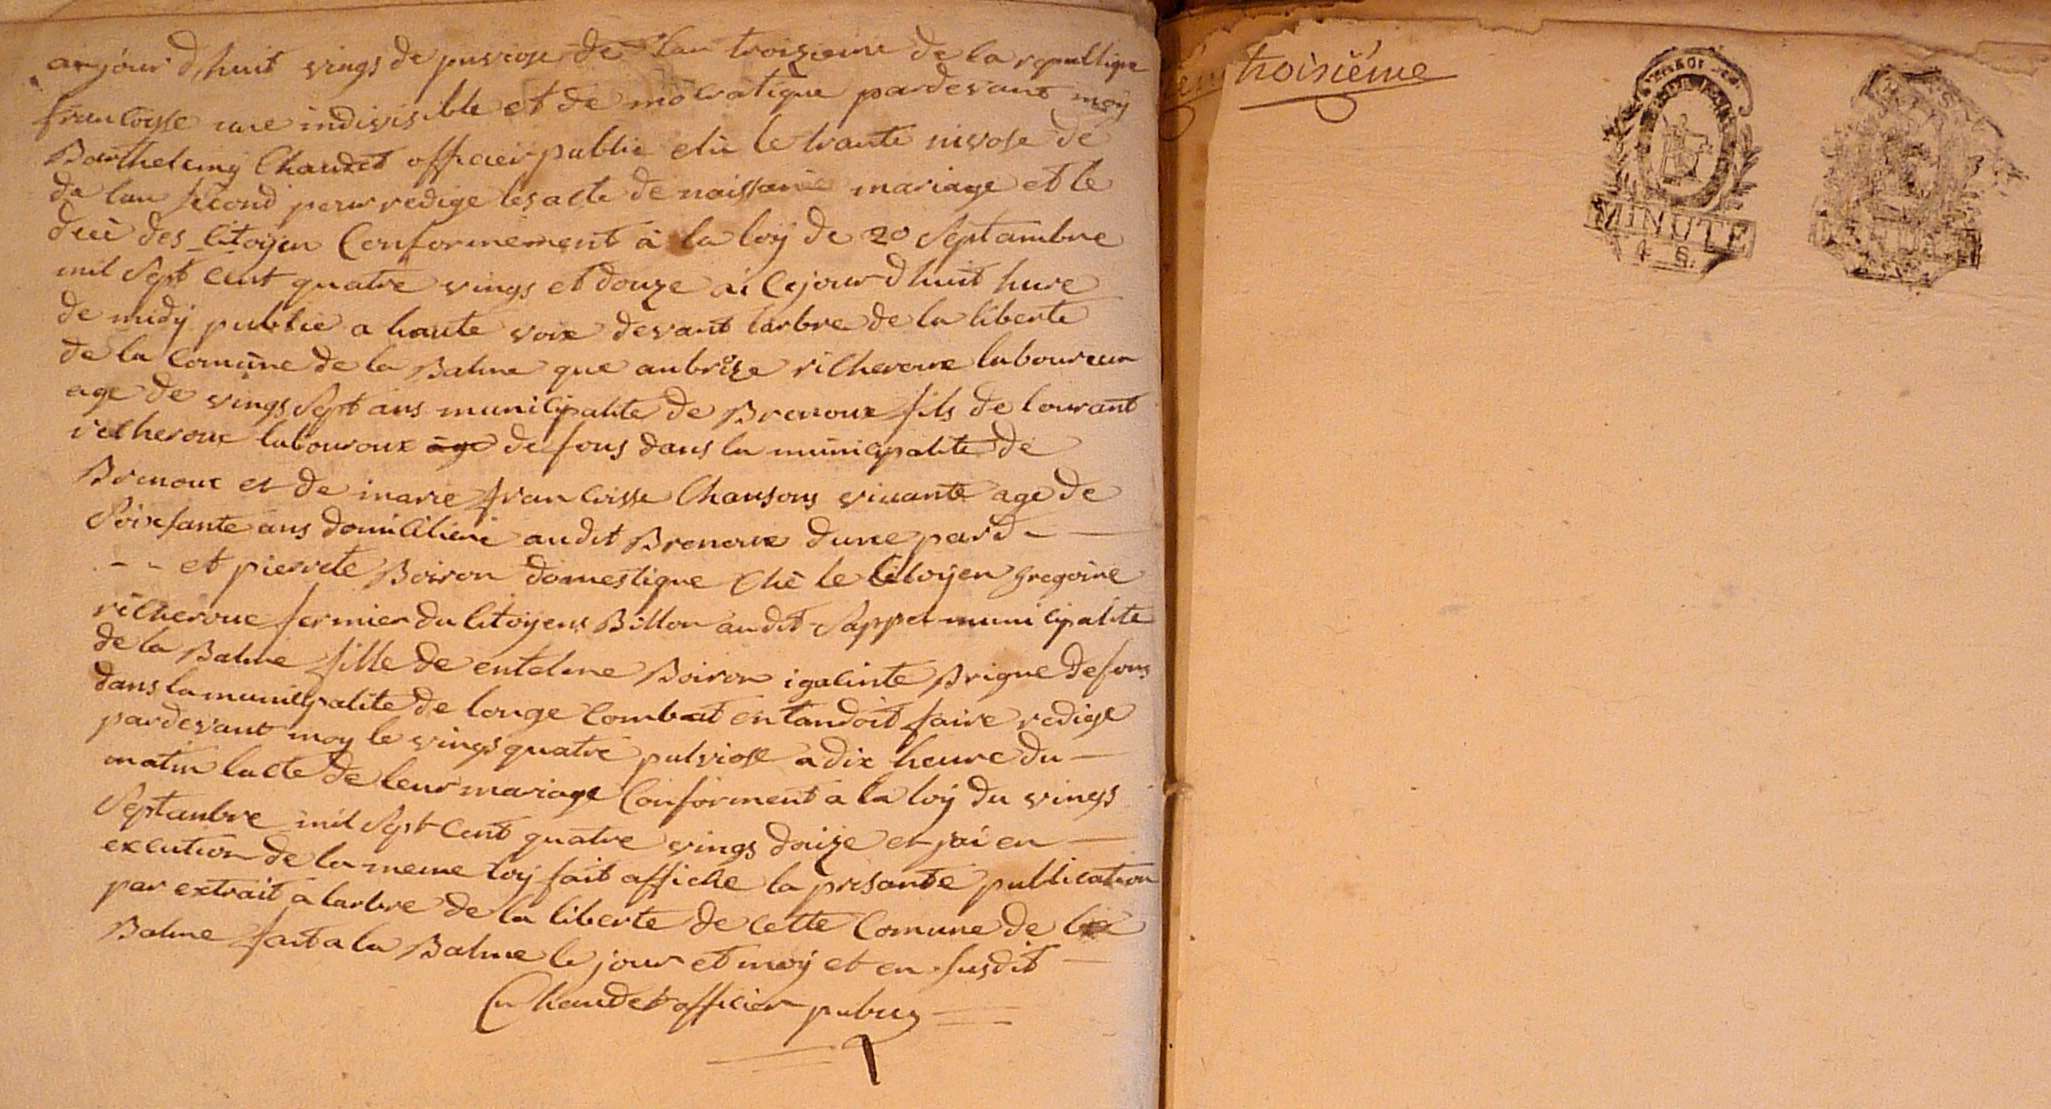 aujour d'huit vings de puviose de lan troizieme de la republique
francoisse une indivisible et de mocratique pardevant moy
Barthelemy Chaudet officier public elu le trante nivose de
de lan second pour redige les acte de naissance mariage et le
decè des citoyen Conformement à la loy de 20 Septambre
mil Sept cent quatre vings et douze ai cejour d huit hure
de midy publie a haute voix devant larbre de la liberte
de la Comune de la Balme que aubroize richeroux laboureur
age de vings Sept ans municipalite de Brenoux fils de lourant
richeroux labouroux age defous dans la municipalite de
Brenoux et de marie francoisse Chansons vivante age de
Soixsante ans domiciliene audit Brenoux dune pard -
- - et pierrete Boiron domestique chè le Citoyen gregoire
richeroux fermier du Citoyens Billon audit Sappet municipalite
de la Balme fille de entelme Boiron igacinte Brigne defous
dans la municipalite de longe Combat entandoit faire redige
pardevant moy le vings quatre pulviose a dix heure du -
matin lacte de leur mariage Conforment a la loy du vings
Septanbre mil Sept Cent quatre vings douize et jai en -
execution de la meme loy fait affiche la presante publication
par extrait a larbre de la liberte de cette Comune de la
Balme fait a la Balme le jour et moy et en susdit -
Chaudet officier public
troisième
MINUTE
4 S.